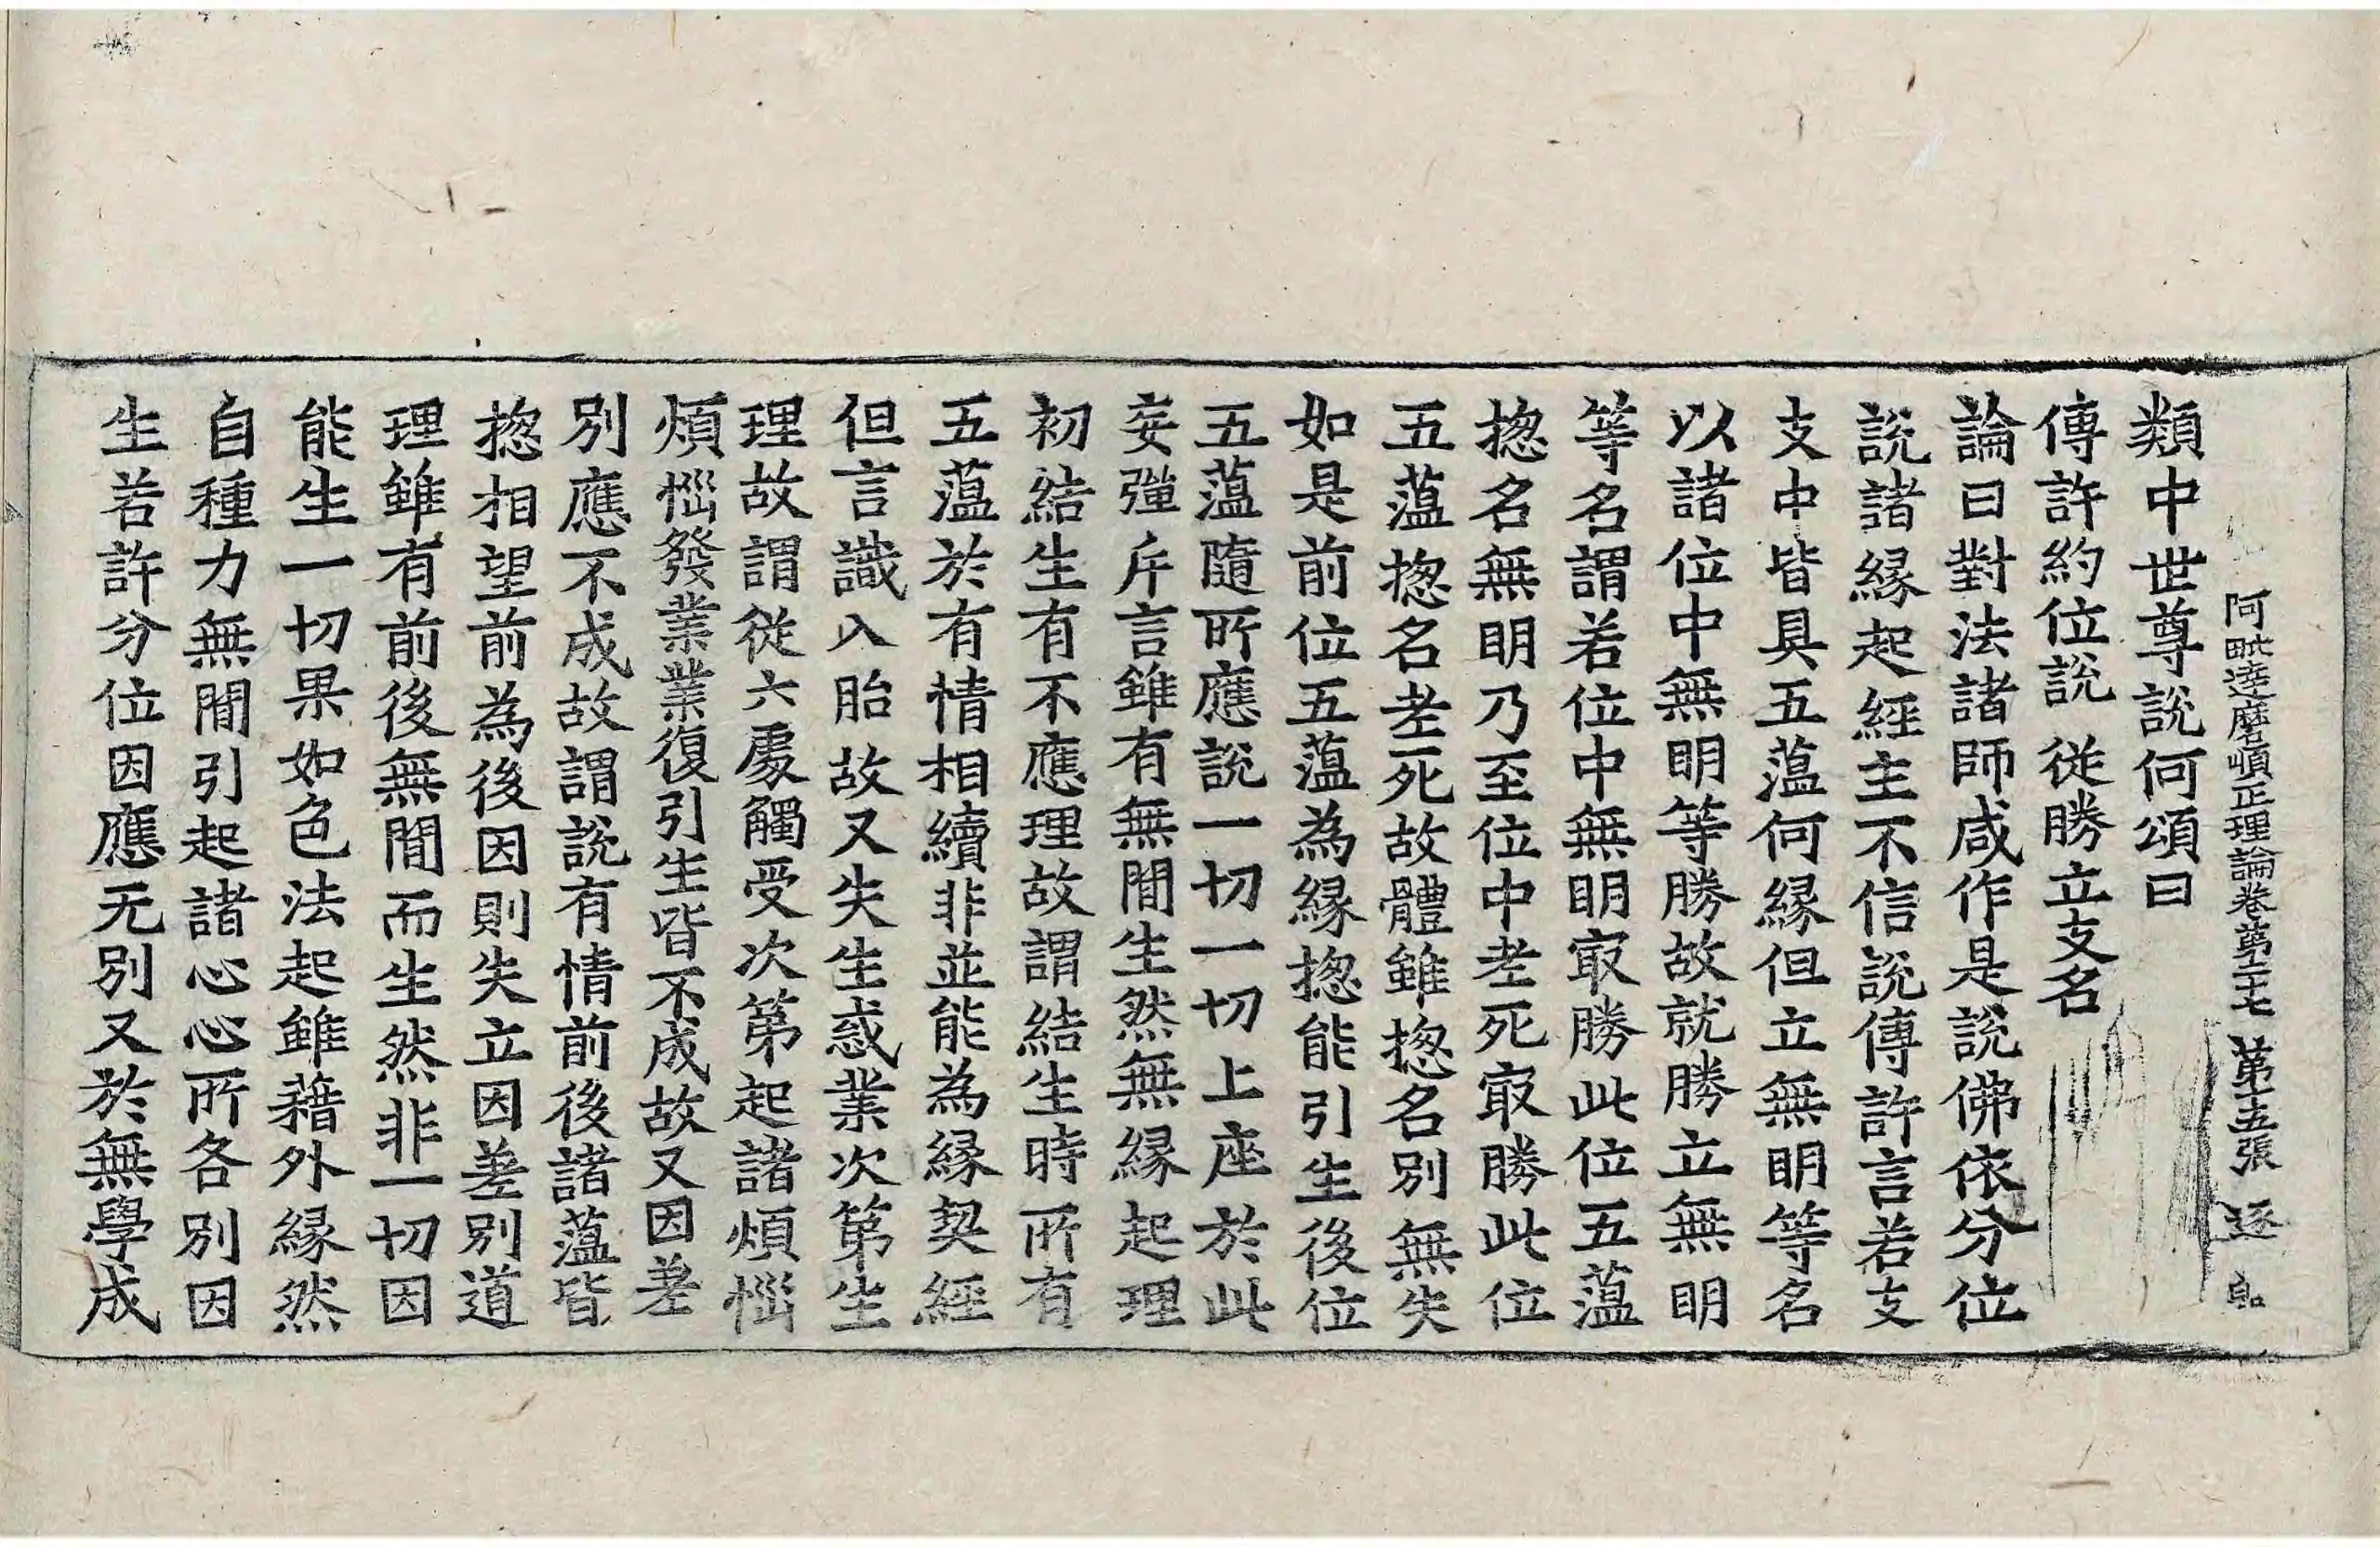 阿毗達磨順正理論卷第二十七 第十五張 逐
類中世尊說何頌曰
傳許約位說 從勝立支名
論曰對法諸師咸作是說佛依分位
說諸緣起經主不信說傳許言若支
支中皆具五蘊何緣但立無明等名
以諸位中無明等勝故就勝立無明
等名謂若位中無明㝡勝此位五蘊
揔名無明乃至位中老死㝡勝此位
五蘊揔名老死故體雖揔名別無失
如是前位五蘊為緣揔能引生後位
五蘊隨所應說一切一切上座於此
妄強斥言雖有無閒生然無緣起理
初結生有不應理故謂結生時所有
五蘊於有情相續非並能為緣契經
但言識入胎故又失生惑業次第生
理故謂從六處觸受次第起諸煩惱
煩惱發業業復引生皆不成故又因差
別應不成故謂說有情前後諸蘊皆
揔相望前為後因則失立因差別道
理雖有前後無閒而生然非一切因
能生一切果如色法起雖藉外緣然
自種力無閒引起諸心心所各別因
生若許分位因應无別又於無學成